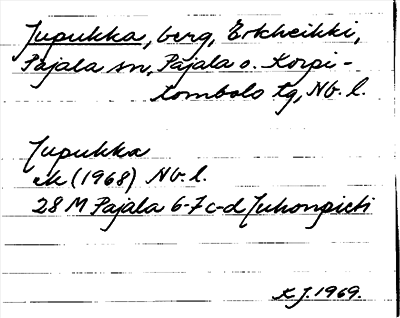 Jupukka, berg, Erkheikki,
Pajala sn, Pajala o. Korpi-
lombolo tg, Nb. l.
Jupukka
ek (1968) Nb. l.
28 M Pajala 6-7 c-d Juhonpieti
K J. 1969.